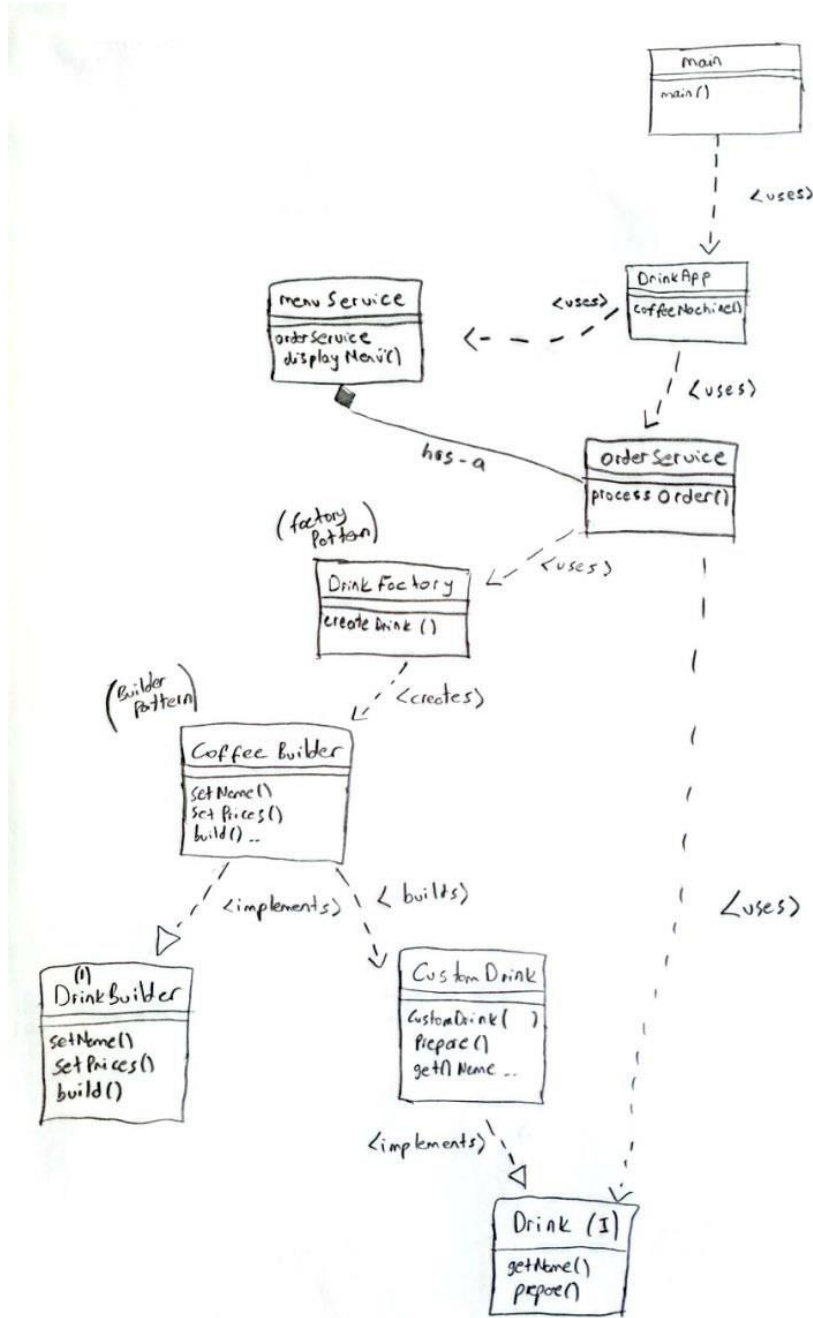 main
main()
<uses>
DrinkApp
coffeeMachine()
<uses>
menu Service
orderService
displayMenü()
<uses>
has-a
orderService
process Order()
(factory
Pattern)
<uses>
Drink Factory
createDrink ()
<creates>
(Builder
Pattern)
Coffee Builder
setName()
set Prices()
build() ..
<implements>
< builds>
<uses>
(I)
DrinkBuilder
setName()
setPrices()
build()
Custom Drink
CustomDrink( )
Prepare()
get() Name ..
<implements>
Drink (I)
getName()
prepare()